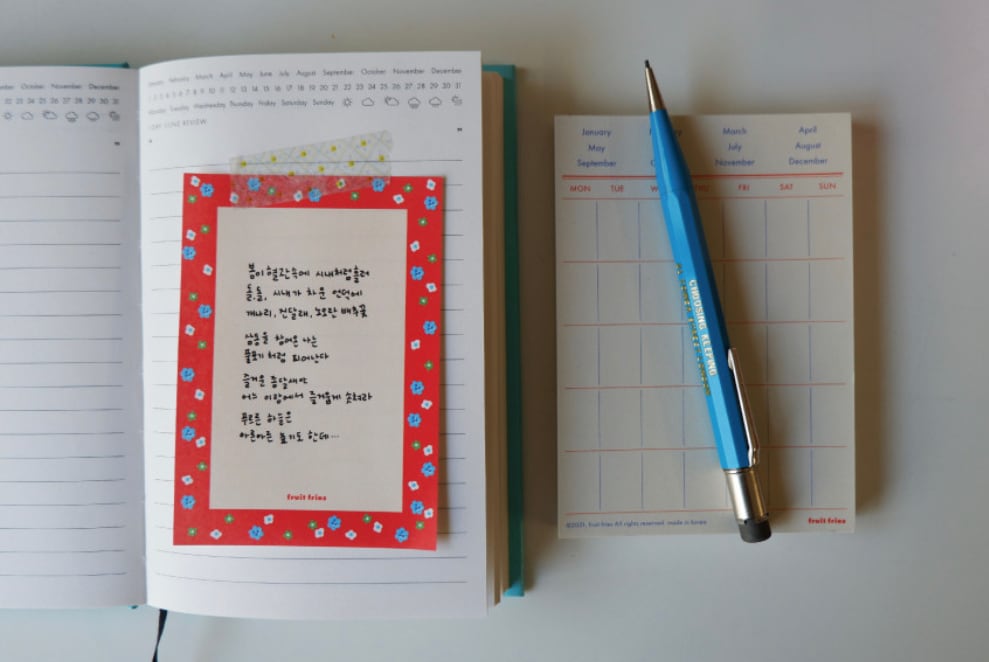 October November December
23 24 25 26 27 28 29 30 31
January February March April May June July August September October November December
1 2 3 4 5 6 7 8 9 10 11 12 13 14 15 16 17 18 19 20 21 22 23 24 25 26 27 28 29 30 31
Monday Tuesday Wednesday Thursday Friday Saturday Sunday
LINE REVIEW
봄이 혈관속에 시내처럼흘러
돌,돌, 시내가 차운 언덕에
개나리, 진달래, 노오란 배추꽃
삼동을 참아온 나는
풀포기 처럼 피어난다
즐거운 종달새야
어느 이랑에서 즐거웁게 솟쳐라
푸르른 하늘은
아른아른 높기도 한데...
fruit fries
January March April
May July August
September November December
MON TUE THU FRI SAT SUN
CHOOSING KEEPING
©2021. fruit fries All rights reserved. made in korea
fruit fries